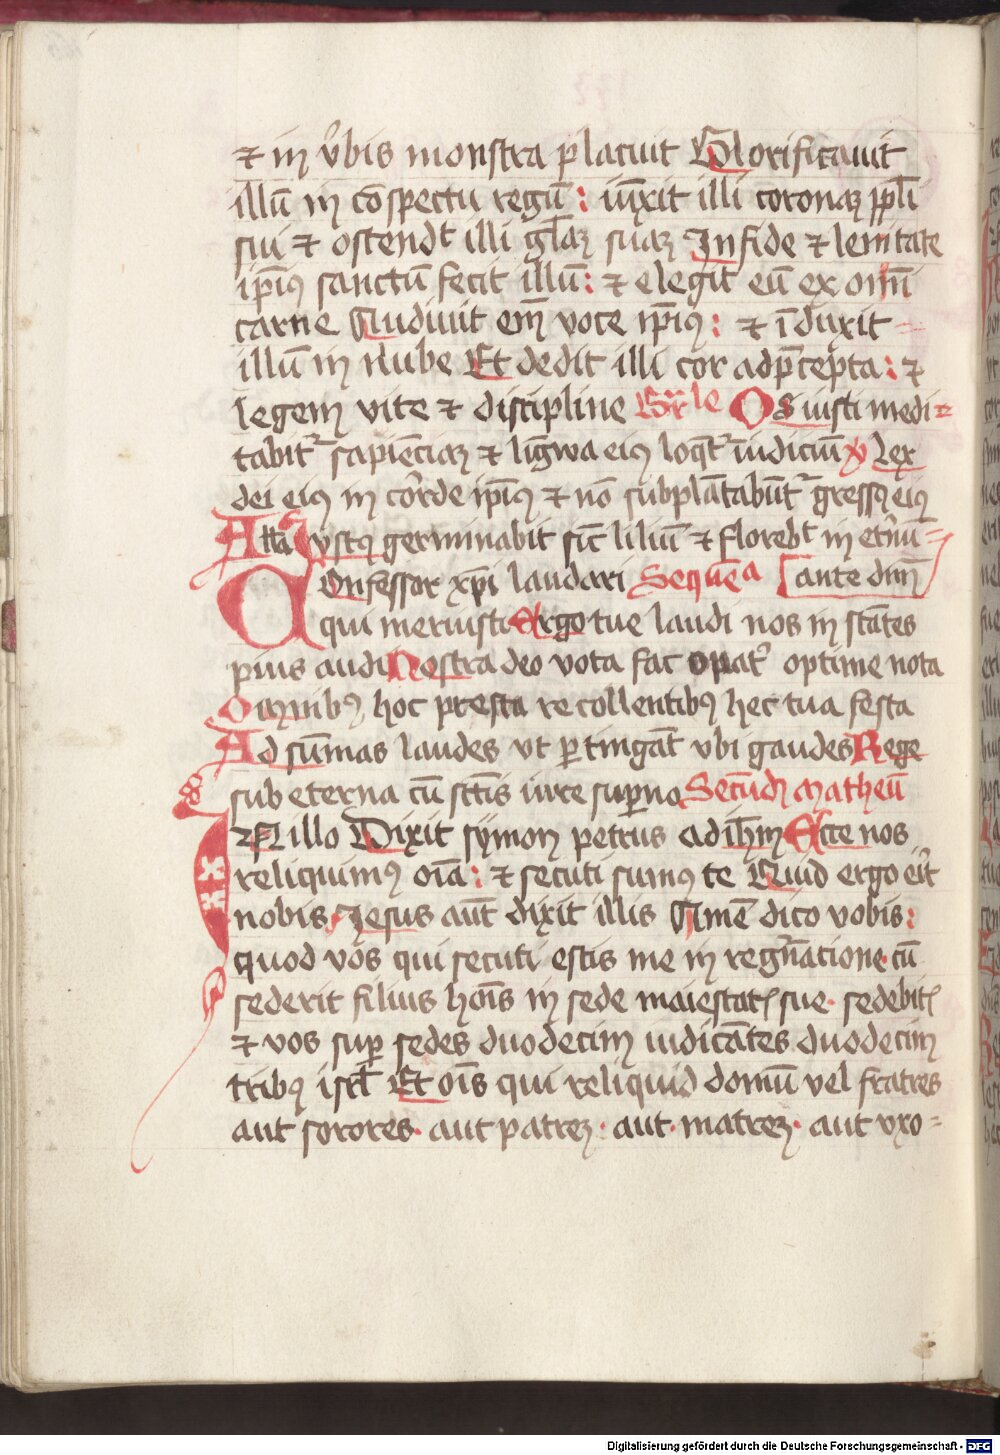 ⁊ in v̾bis monstra placuit Glorificauit
illū in cōspectu regū : iūxit illi coronaꝫ ppl̄i
sui ⁊ ostendt illi gl̄aꝫ suaꝫ In fide ⁊ lenitate
ip̄iꝰ sanctū fecit illū : ⁊ elegit eū ex omī
carne Audiuit em̄ voce ip̄iꝰ : ⁊ īduxit
illū in nube Et dedit illi cor ad p̄cepta : ⁊
legem vite ⁊ discipline Gr̄le Os iusti medi=
tabitᷣ sapiēciaꝫ ⁊ lingwa eiꝰ loqᷣtᷣ iudiciū ꝟ Lex
dei eiꝰ in corde ip̄iꝰ ⁊ nō subplātabūtᷣ gressꝰ eiꝰ
Alla Iustꝰ germinabit sic̄ liliū ⁊ florebt in et̾nū=
Onfessor xp̄i laudari Sequēa ante dnm̄
C qui meruisti Ergo tue laudi nos instātes
pius audi Nostra deo vota fac opatᷣ optime nota
Omnibꝰ hoc presta recollentibꝰ hec tua festa
Ad sūmas laudes vt ꝑtingāt vbi gaudes Rege
sub eterna cū sctīs iure suꝑno Secūdꝫ matheū
In illo Dixit symon petrus ad ih̄m Ecce nos
reliquimꝰ oīa : ⁊ secuti sumꝰ te Quid ergo er̾it
nobis Jesus aūt dixit illis Amē dico vobis :
quod vos qui secuti estis me in regn̾atione cū
sederit filius hoīs in sede maiestatꝭ sue · sedebitꝭ
⁊ vos suꝑ sedes duodecim iudicātes duodecim
tribꝰ isrl̄ Et oīs qui reliquid domū vel fratres
aut sorores · aut patreꝫ · aut · matreꝫ · aut vxo=
Digitalisierung gefördert durch die Deutsche Forschungsgemeinschaft - DFG